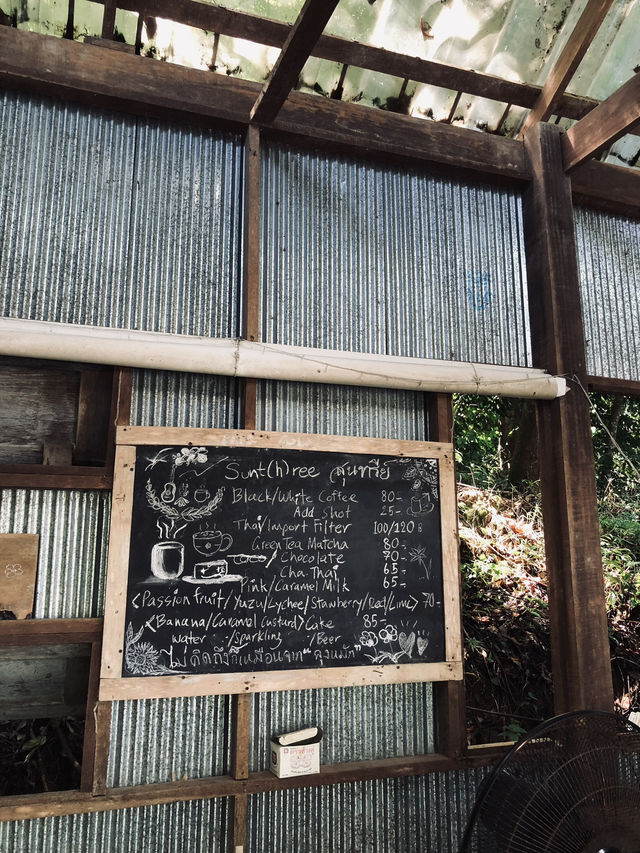 Sunt(h)ree สุนทรีย์
Black/White Coffee 80-
Add Shot 25-
Thai/Import Filter 100/120฿
Green Tea Matcha 80-
/ Chocolate 70-
Cha Thai 65-
Pink/Caramel Milk 65-
<Passion fruit/Yuzu/Lychee/Stawberry/Red/Lime> 70-
<Banana/Caramel Custard> Cake 85-
water /Sparkling /Beer
ไม่คิดถึง